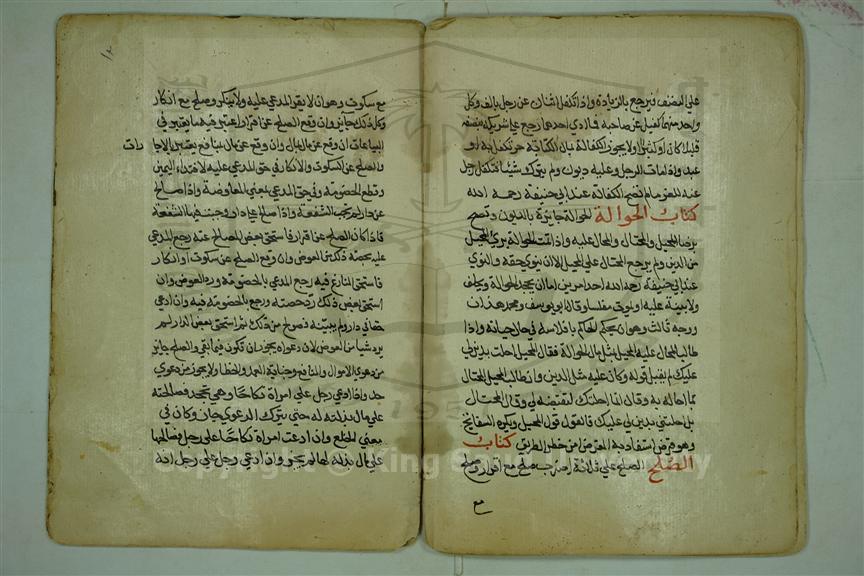 علي النصف فيرجع بالزيادة واذا تكفل اثنان عن رجل بالف وكل
واحد منهما كفيل عن صاحبه فما ادي احدهما رجع علي شريكه بنصفه
قليلا كان او كثيرا ولا يجوز الكفالة بمال الكتابة حر تكفل به او
عبد واذا مات الرجل وعليه ديون ولم يترك شيئا فتكفل رجل
عنه للغرماء لم تصح الكفالة عند ابي حنيفة رحمه الله
كتاب الحوالة الحوالة جايزة بالديون وتصح
برضا المحيل والمحتال والمحال عليه واذا تمت الحوالة بري المحيل
من الدين ولم يرجع المحتال علي المحيل الا ان يتوي حقه والتوي
عند ابي حنيفة رحمه الله احد امرين اما ان يجحد الحوالة ويحلف
ولا بينة عليه او يموت مفلسا وقال ابو يوسف ومحمد هذان
ووجه ثالث وهو ان يحكم الحاكم بافلاسه في حال حياته واذا
طالب المحال عليه المحيل بمثل مال الحوالة فقال المحيل احلت بدين لي
عليك لم يقبل قوله وكان عليه مثل الدين وان طالب المحيل المحتال
بما احاله به وقال انما احلتك لتقبضه لي وقال المحتال
بل احلتني بدين لي عليك فالقول قول المحيل ويكره السفاتج
وهو قرض استفاد به المقرض امن خطر الطريق كتاب
الصلح الصلح علي ثلاثة اضرب صلح مع اقرار وصلح
مع
مع سكوت وهو ان لا يقر المدعي عليه ولا ينكر وصلح مع انكار
وكل ذلك جايز وان وقع الصلح عن اقرار اعتبر فيه ما يعتبر في
البياعات ان وقع عن مال بمال وان وقع عن مال بمنافع يعتبر بالاجا رات
والصلح عن السكوت والانكار في حق المدعي عليه لافتداء اليمين
وقطع الخصومة وفي حق المدعي بمعني المعاوضة واذا صالح
عن دار لم يجب الشفعة واذا صالح علي دار وجبت فيها الشفعة
فاذا كان الصلح عن اقرار فاستحق بعض المصالح عنه رجع المدعي
عليه بحصة ذلك من العوض وان وقع الصلح عن سكوت او انكار
فاستحق المتنازع فيه رجع المدعي بالخصومة ورد العوض وان
استحق بعض ذلك رد حصته ورجع بالخصومة فيه وان ادعي
حقا في دار ولم يبينه فصولح من ذلك ثم استحق بعض الدار لم
يرد شيا من العوض لان دعواه يجوز ان تكون فيما بقي والصلح جايز
من دعوي الاموال والمنافع وجناية العمد والخطا ولا يجوز من دعوي
حد واذا ادعي رجل علي امراة نكاحا وهي تجحد فصالحته
علي مال بذلته له حتي يترك الدعوي جاز وكان في
معني الخلع واذا ادعت امراة نكاحا علي رجل فصالحها
علي مال بذله لها لم يجز وان ادعي رجل علي رجل انه
Copyright © King Saud University